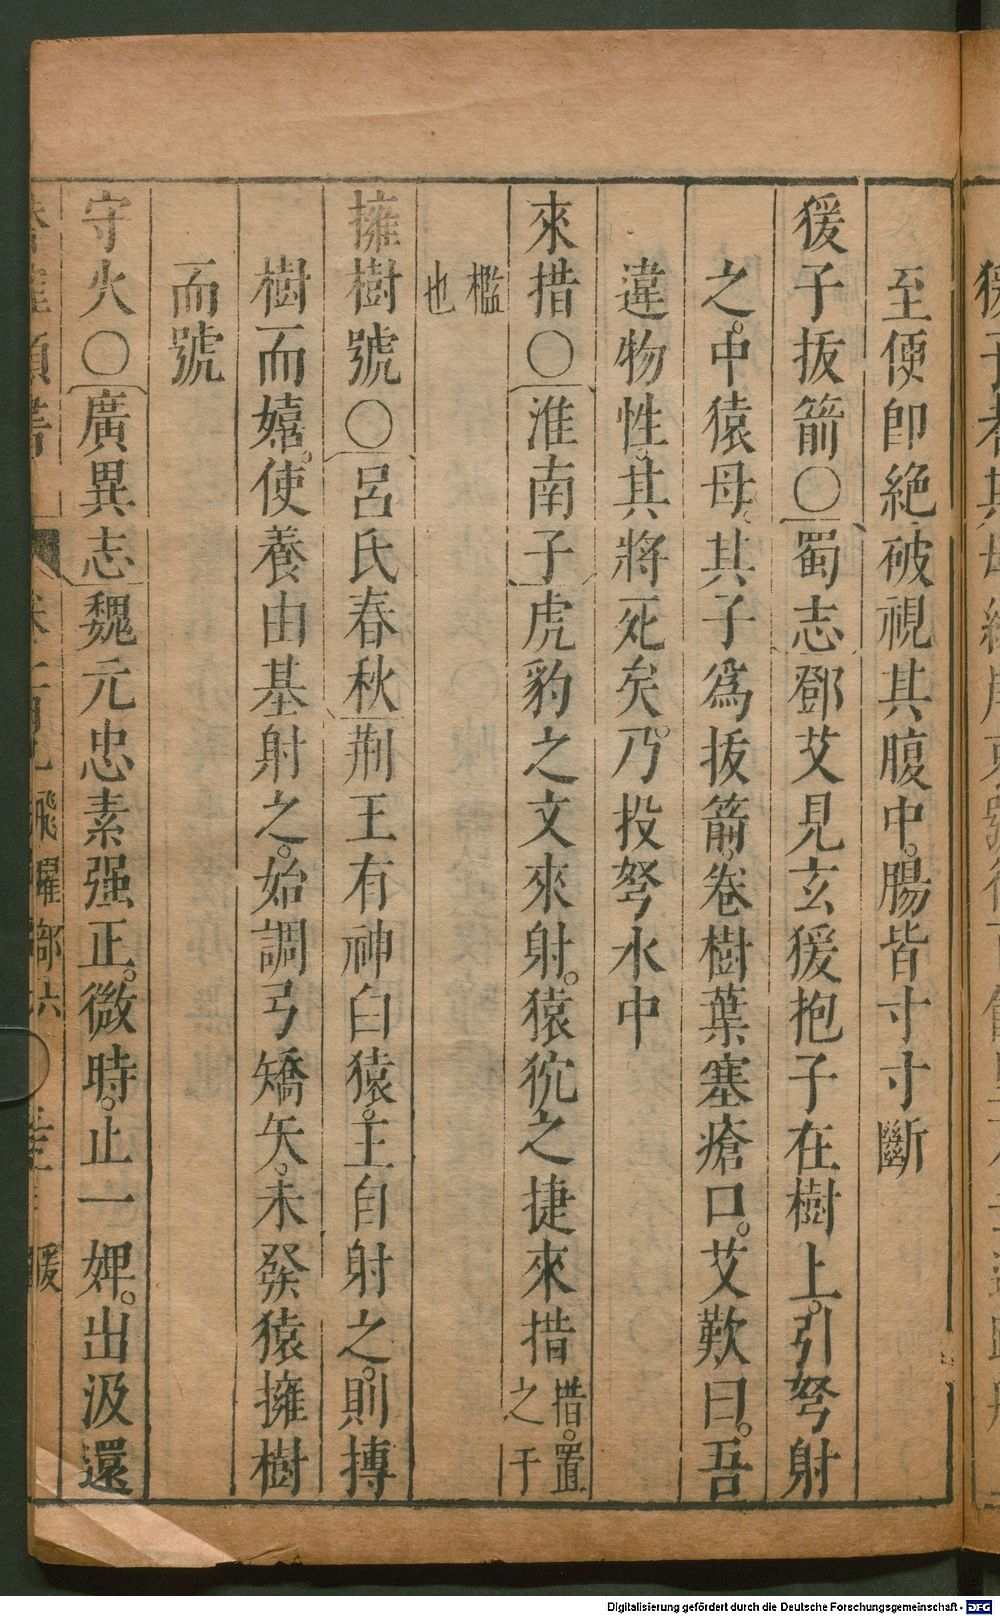 至便即絕破視其腹中。腸皆寸寸斷
猨子拔箭○蜀志鄧艾見玄猨抱子在樹上。引弩射
之。中猿母。其子爲拔箭。卷樹葉塞瘡口。艾歎曰。吾
違物性。其將死矣。乃投弩水中
來措○淮南子虎豹之文來射。猿狖之捷來措措。置之于
檻也
擁樹號○呂氏春秋荊王有神白猿。王自射之。則搏
樹而嬉。使養由基射之。始調弓矯矢。未發猿擁樹
而號
守火○廣異志魏元忠素强正。微時。止一婢。出汲還
飛躍部六
Digitalisierung gefördert durch die Deutsche Forschungsgemeinschaft - DFG